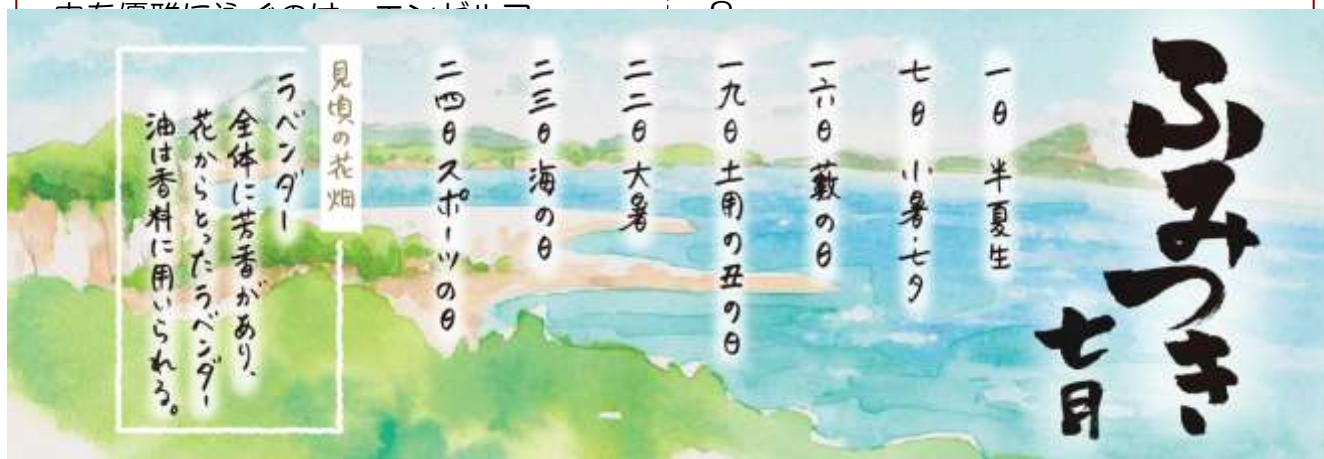 ふみつき
七月
一日 半夏生
七日 小暑・七夕
一六日 藪の日
一九日 土用の丑の日
二二日 大暑
二三日 海の日
二四日 スポーツの日
見頃の花畑
ラベンダー
全体に芳香があり、
花からとったラベンダー
油は香料に用いられる。